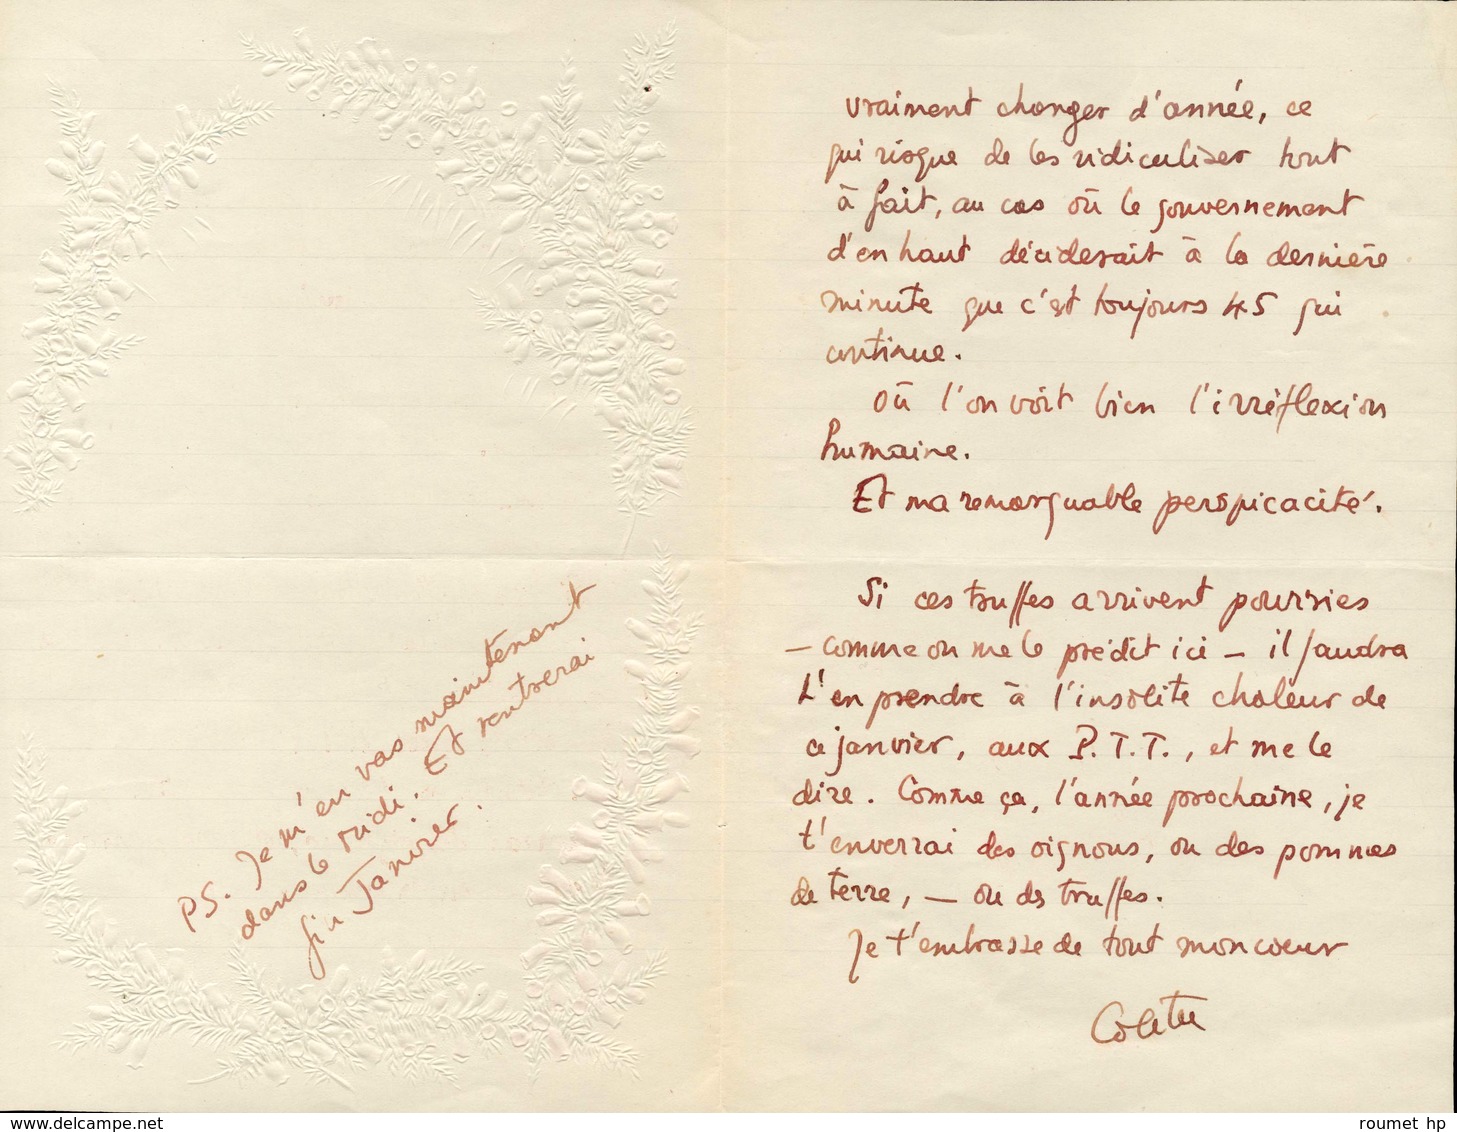 vraiment changer d'année, ce
qui risque de les ridiculiser tout
à fait, au cas où le gouvernement
d'en haut déciderait à la dernière
minute que c'est toujours 45 qui
continue.
Où l'on voit bien l'irréflexion
humaine.
Et ma remarquable perspicacité.
Si ces truffes arrivent pourries
— comme on me le prédit ici — il faudra
t'en prendre à l'insolite chaleur de
ce janvier, aux P.T.T., et me le
dire. Comme ça, l'année prochaine, je
t'enverrai des oignons, ou des pommes
de terre, — ou des truffes.
Je t'embrasse de tout mon coeur
Colette
PS. Je m'en vas maintenant
dans le midi. Et rentrerai
fin Janvier.
www.delcampe.net
roumet hp